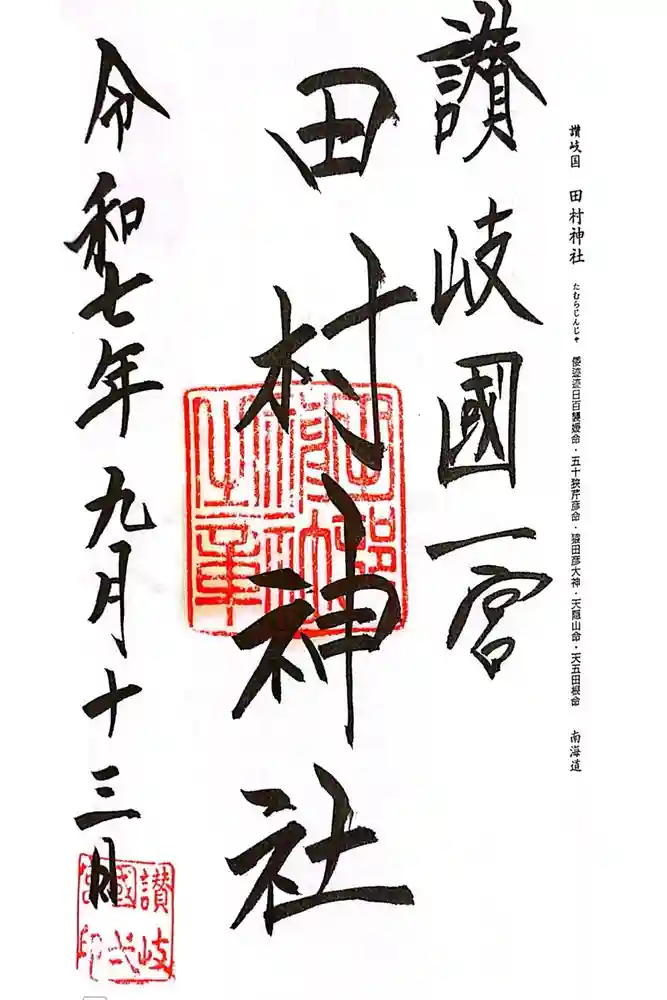 讃岐国 田村神社 たむらじんじゃ 倭迹迹日百襲媛命・五十狭芹彦命・猿田彦大神・天隠山命・天五田根命 南海道
讃岐國一宮
田村神社
令和七年九月十三日
讃岐
國弌
宮印